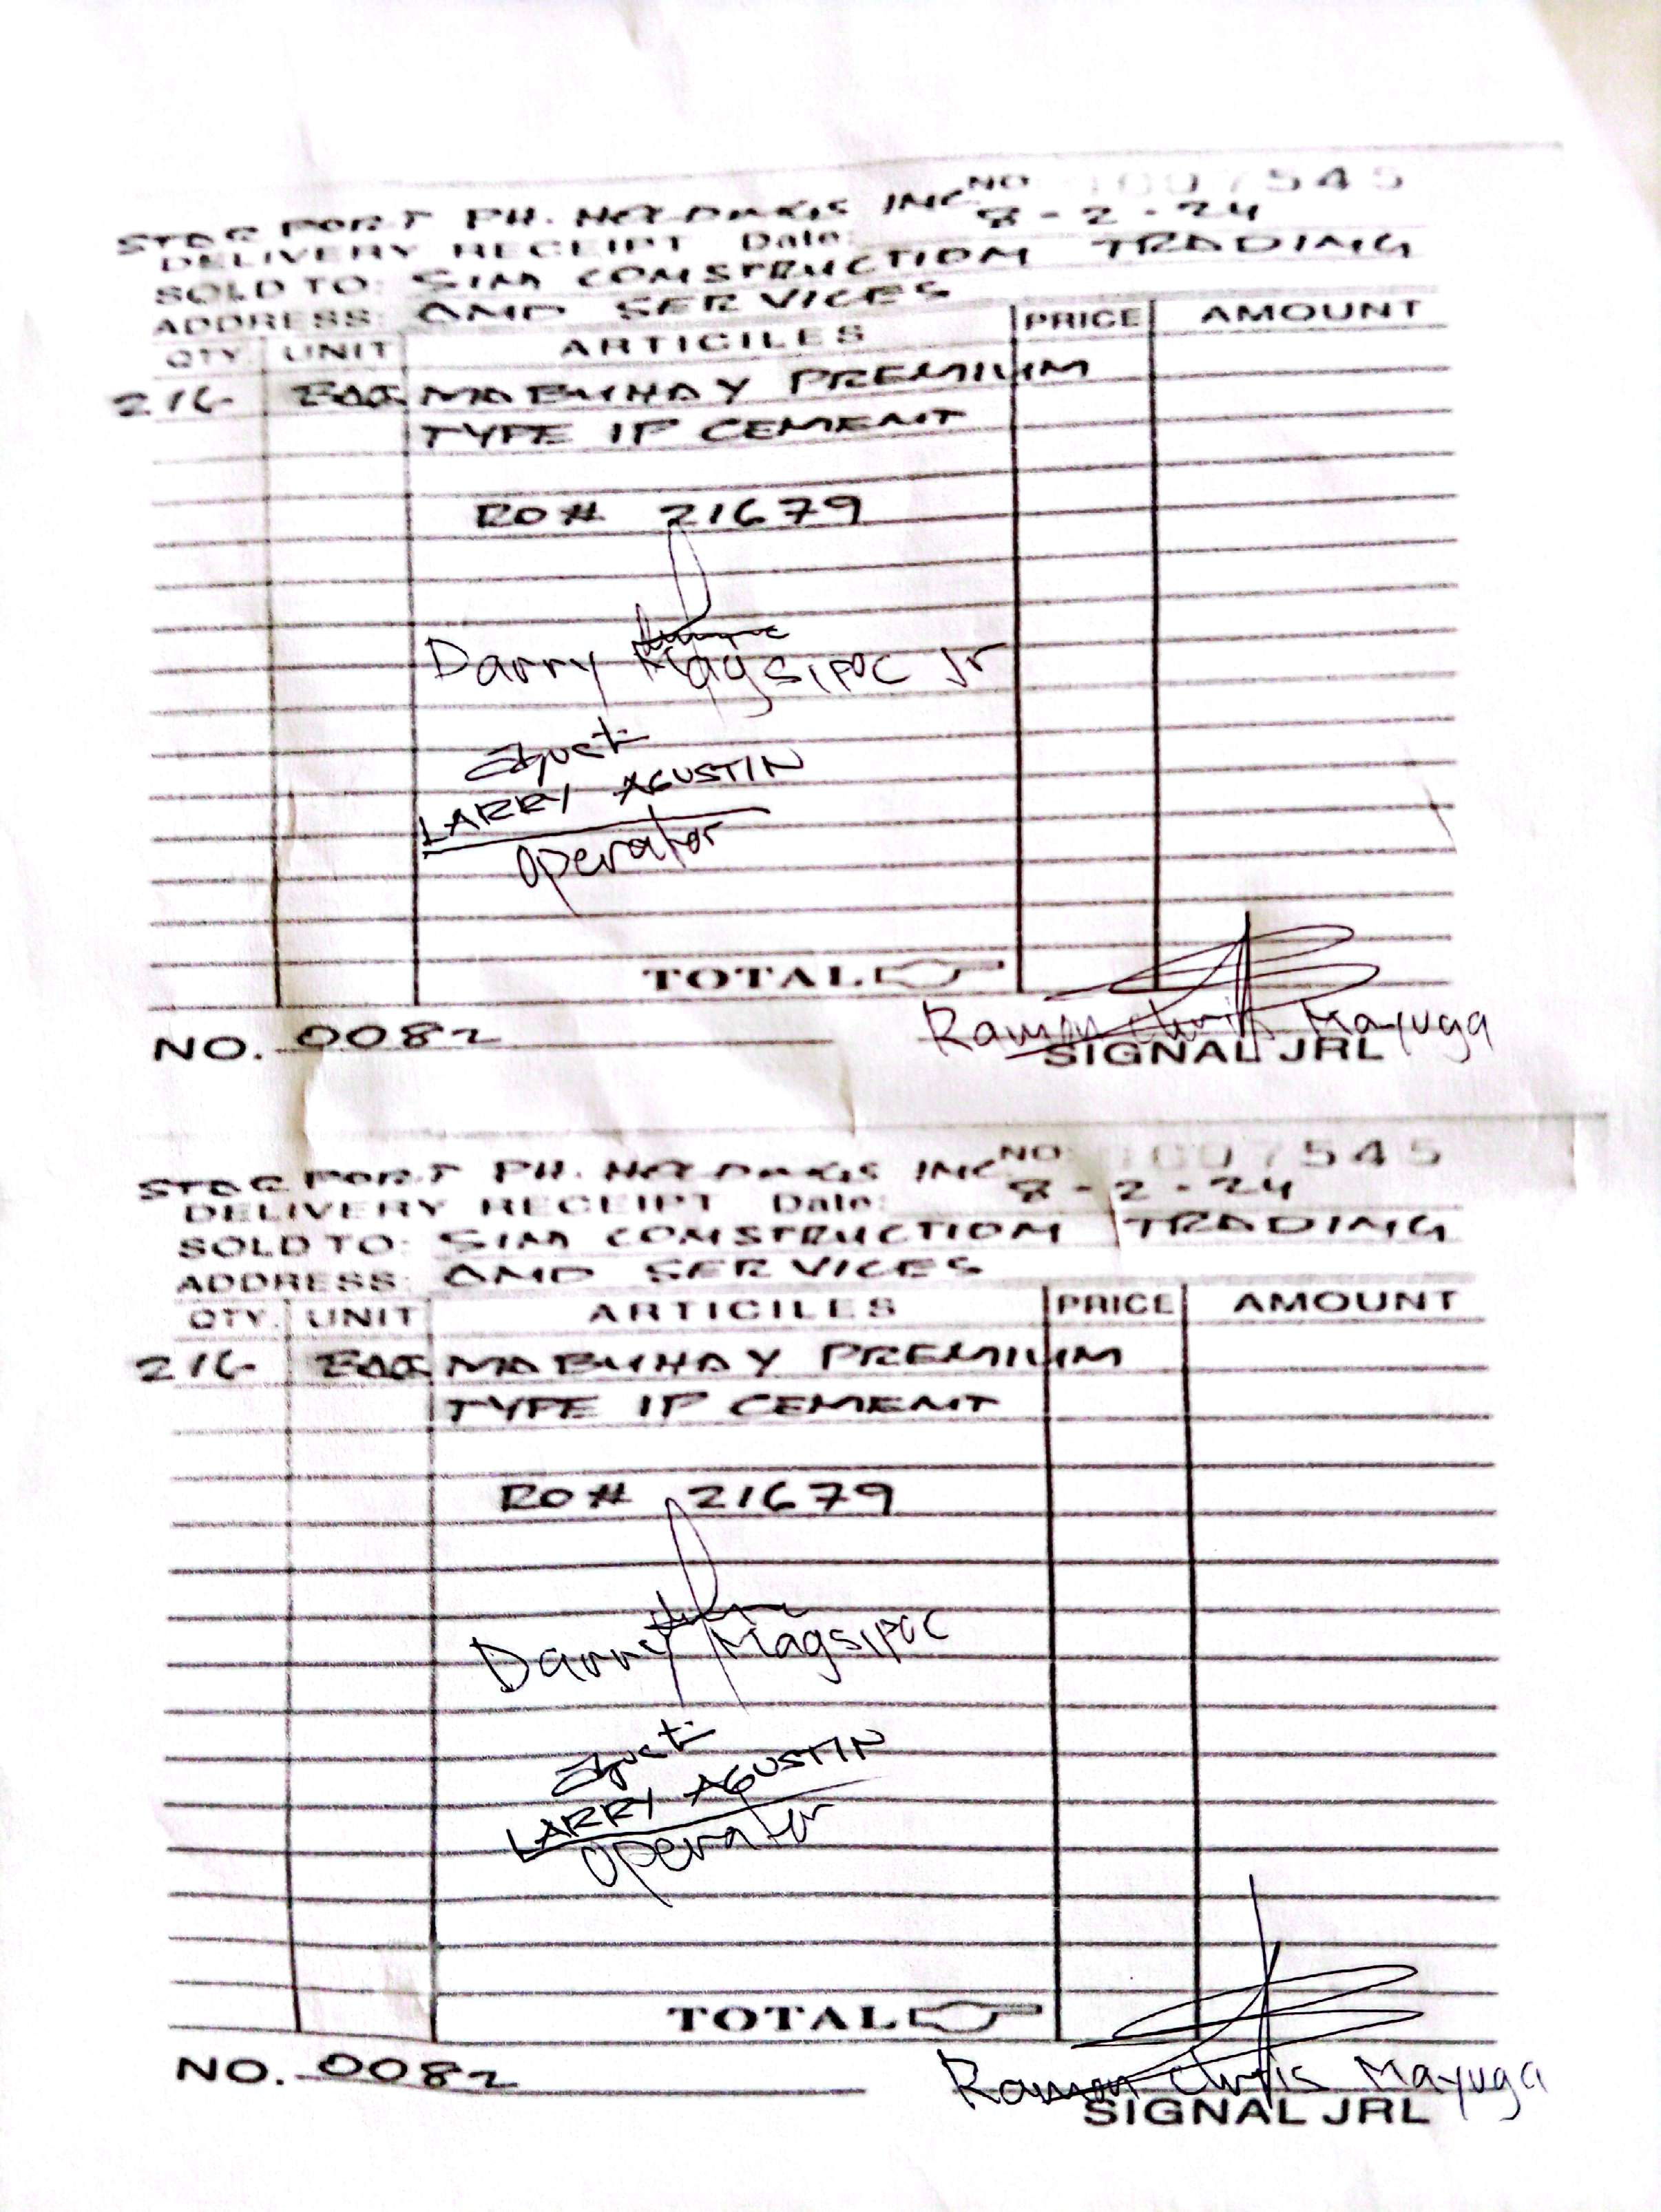 STARPORT PH. HOLDINGS INC NO 1007545
DELIVERY RECEIPT Date: 8-2-24
SOLD TO: SIM CONSTRUCTION TRADING
ADDRESS: AND SERVICES
QTY. UNIT ARTICILES PRICE AMOUNT
216 BAG MABUHAY PREMIUM
TYPE 1P CEMENT
RO# 21679
Darry Magsipoc Jr
LARRY AGUSTIN
Operator
TOTAL
Ramon Chris Mayuga
NO. 0082 SIGNAL JRL
STARPORT PH. HOLDINGS INC NO 1007545
DELIVERY RECEIPT Date: 8-2-24
SOLD TO: SIM CONSTRUCTION TRADING
ADDRESS: AND SERVICES
QTY. UNIT ARTICILES PRICE AMOUNT
216 BAG MABUHAY PREMIUM
TYPE 1P CEMENT
RO# 21679
Darry Magsipoc
LARRY AGUSTIN
Operator
TOTAL
Ramon Chris Mayuga
NO. 0082 SIGNAL JRL